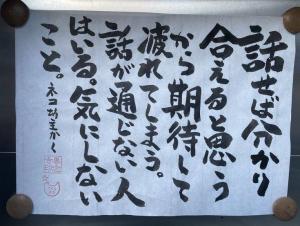 話せば分かり
合えると思う
から期待して
疲れてしまう。
話が通じない人
はいる。気にしない
こと。
ネコ坊主かく